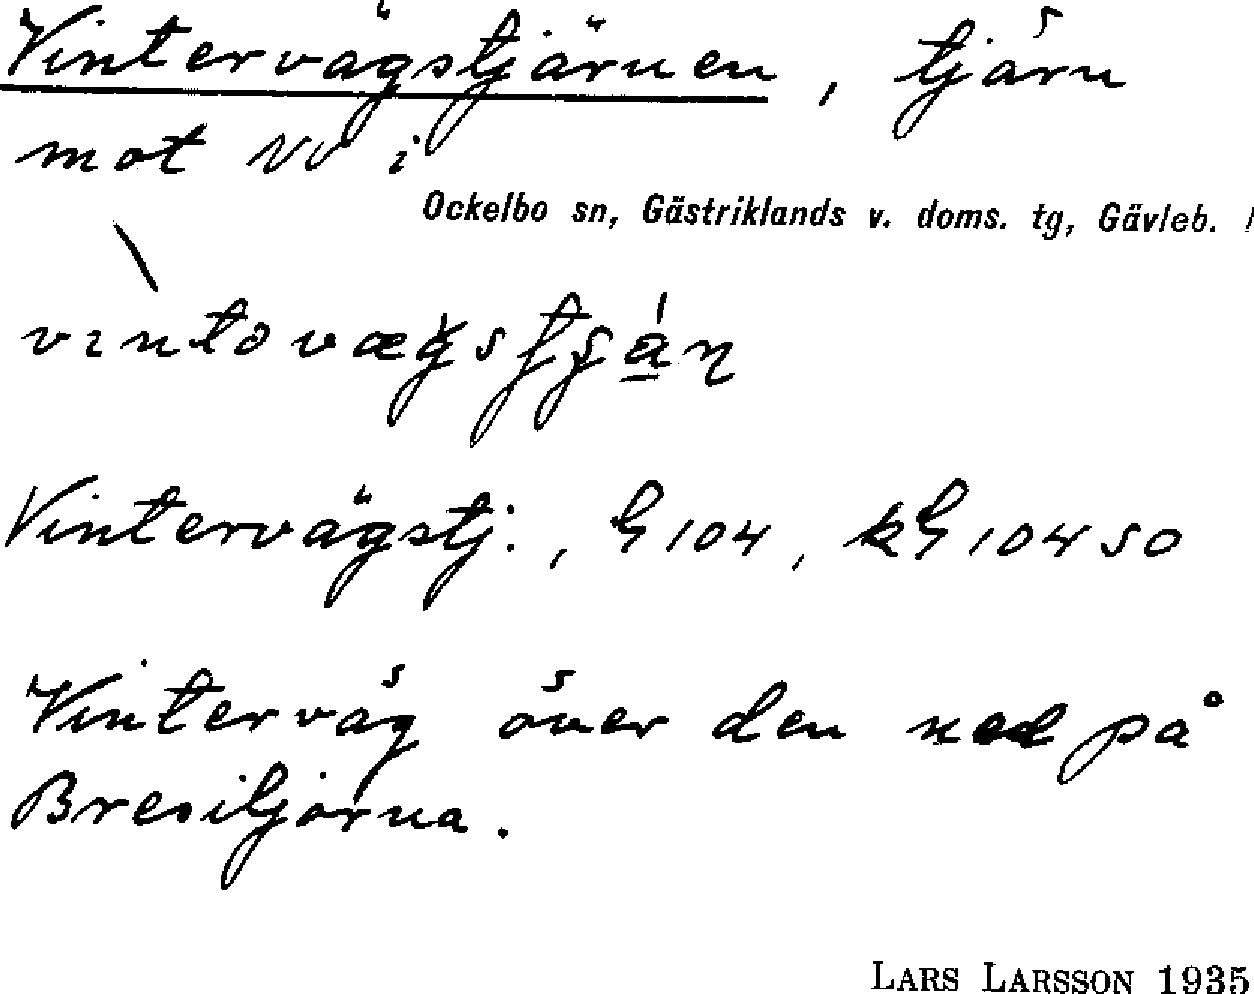 Vintervägstjärnen, tjärn
mot NV i
Ockelbo sn, Gästriklands v. doms. tg, Gävleb.
Vintervägstj., G 104, kG 104 50
Vinterväg över den ned på
LARS LARSSON 1935